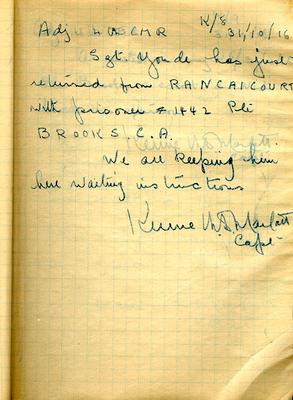 K/8
Adj 4 CMR 31/10/16
Sgt. Youde has just
returned from RANCANCOURT
with prisoner # 1442 Pte
BROOKS, C.A.
We are keeping him
here waiting instructions
Capt